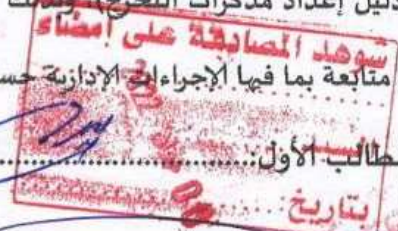 دليل إعداد مذكرات التخرج)، وذلك
شوهد المصادقة على إمضاء
متابعة بما فيها الإجراءات الإدارية حسـ
السيد
طالب الأول:....................
بتاريخ: